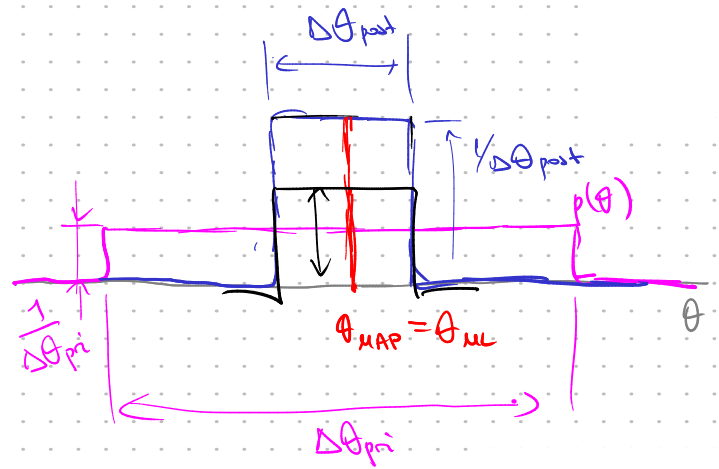 Δθpost
1/Δθpost
p(θ)
1/Δθpri
θMAP = θML
θ
Δθpri